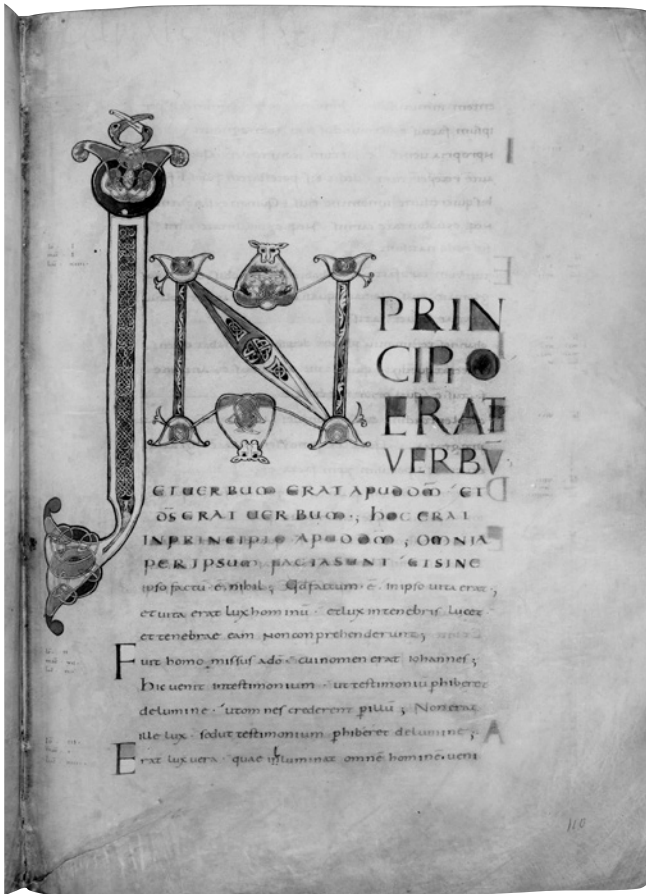 IN
PRIN
CIPIO
ERAT
VERBŪ
ET UERBUM ERAT APUD DM̄ ET
DS̄ ERAT UERBUM ; hOC ERAT
IN PRINCIPIO APUD DM̄ ; OMNIA
PER IPSUM FACTA SUNT ET SINE
ipso factū ē nihil ; Qd̄ factum ē in ipso uita erat ;
et uita erat lux hominū · et lux in tenebris lucet
et tenebrae eam non conprehenderunt ;
Fuit homo missus a dō · cui nomen erat iohannes ;
hic uenit in testimonium · ut testimoniū phiberet
de lumine · ut omnes crederent p illū ; Non erat
ille lux · sed ut testimonium phiberet de lumine ;
Erat lux uera · quae inluminat omnē hominē · ueni
110